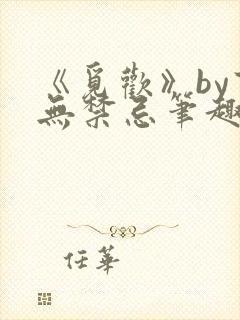 《觅歡》by
無禁忌筆趣
任華